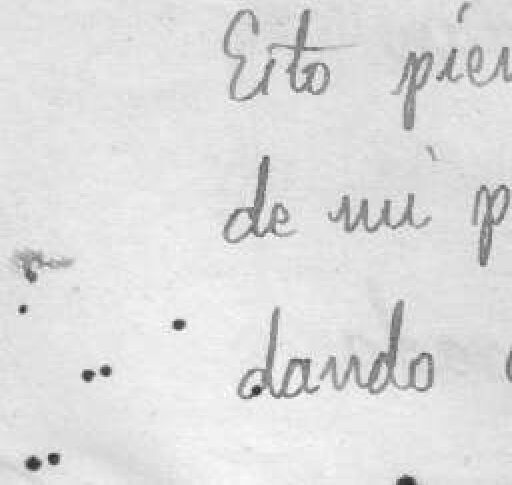 Esto pien
de mi p
dando